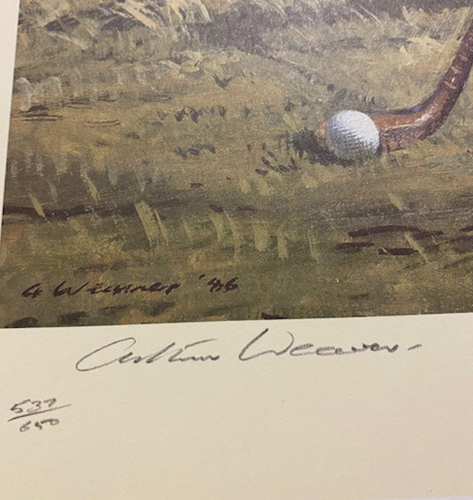 A Weaver '86
Arthur Weaver
537/650